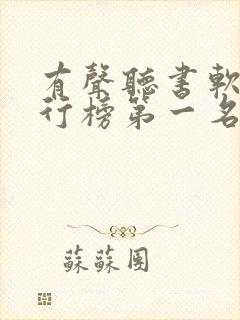 有聲聽書軟
行榜第一名
蘇蘇團